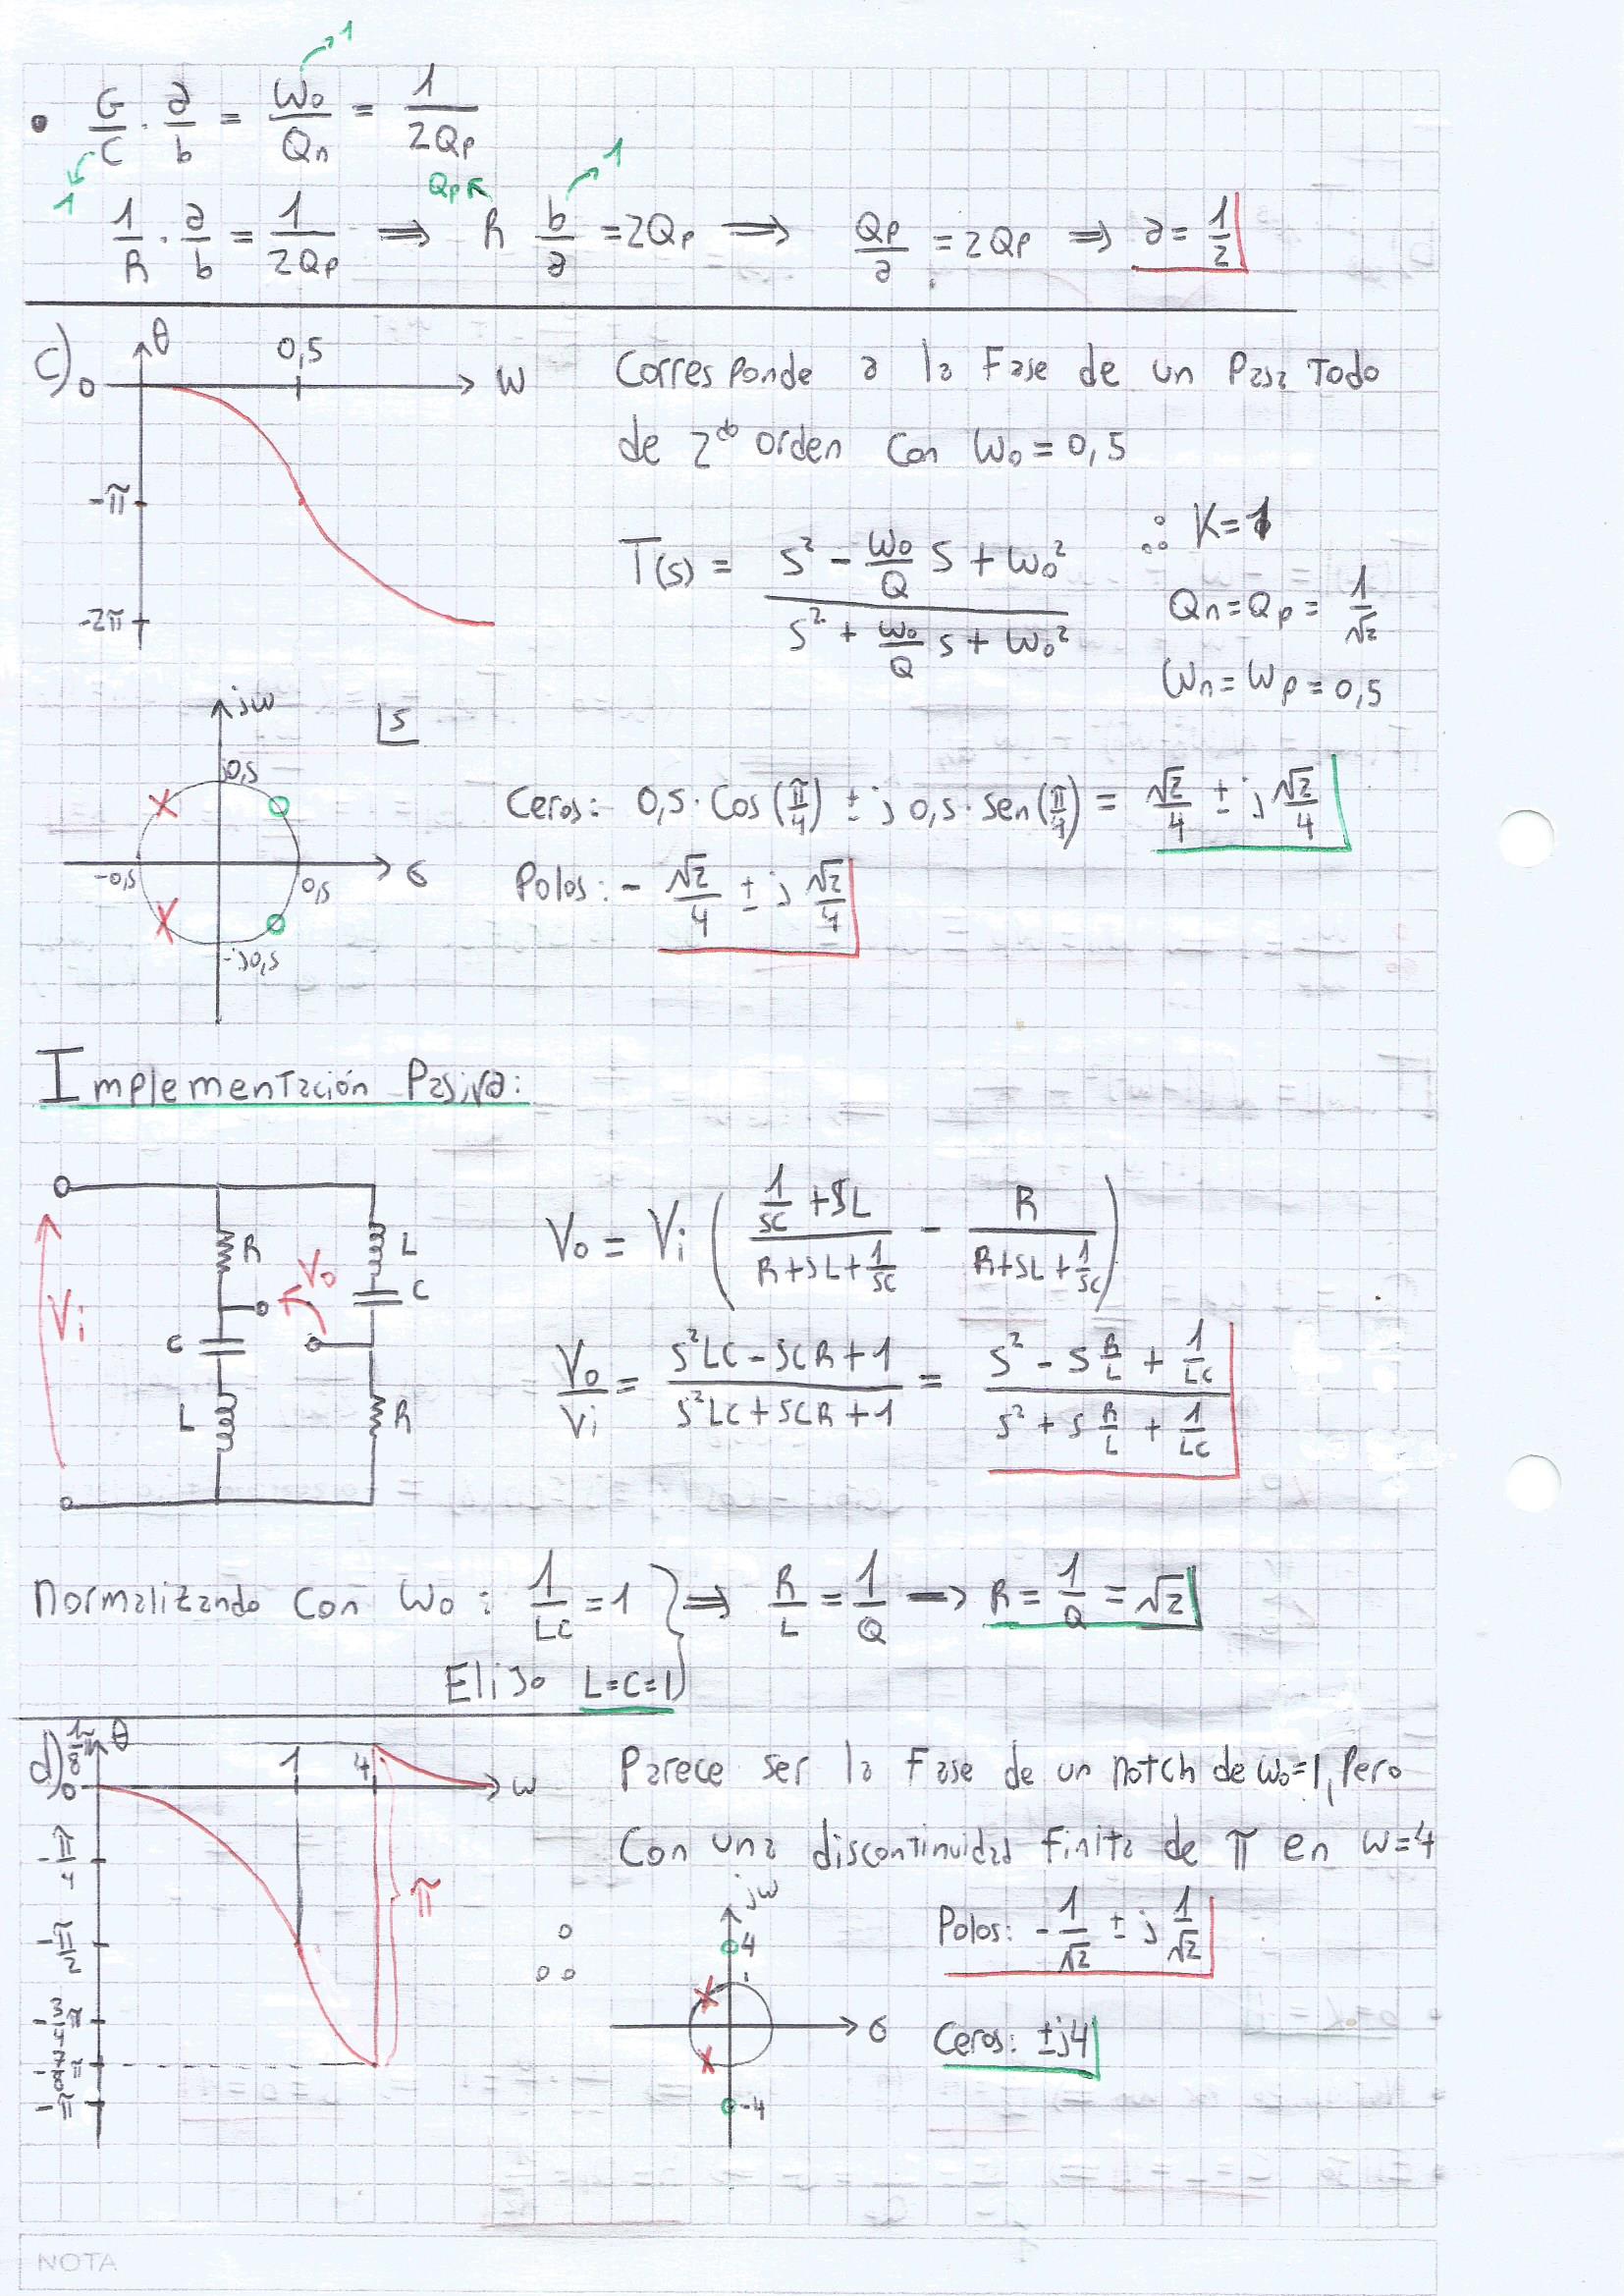 • G/C · a/b = ω₀/Qn = 1/(2Qp)
1
1
1/R · a/b = 1/(2Qp) ⟹ R b/a = 2Qp ⟹ Qp/a = 2Qp ⟹ a = 1/2
Qp
1
c)
θ
0,5
0
ω
-π
-2π
Corresponde a la Fase de un Pasa Todo
de 2do orden con ω₀ = 0,5
T(s) = (s² - ω₀/Q s + ω₀²)/(s² + ω₀/Q s + ω₀²)
∴ K=1
Qn = Qp = 1/√2
ωn = ωp = 0,5
jω
s
j0,5
-0,5
0,5
σ
-j0,5
Ceros: 0,5·cos(π/4) ± j 0,5·sen(π/4) = √2/4 ± j √2/4
Polos: - √2/4 ± j √2/4
Implementación Pasiva:
Vi
R
L
Vo
C
C
L
R
Vo = Vi ((1/SC + SL)/(R+SL+1/SC) - R/(R+SL+1/SC))
Vo/Vi = (S²LC - SCR + 1)/(S²LC + SCR + 1) = (S² - S R/L + 1/LC)/(S² + S R/L + 1/LC)
Normalizando con ω₀: 1/LC = 1 } ⟹ R/L = 1/Q → R = 1/Q = √2
Elijo L=C=1
d)
1/8 π
θ
1
4
0
ω
-π/4
-π/2
-3/4 π
-7/8 π
-π
π
Parece ser la Fase de un notch de ω₀=1, Pero
Con una discontinuidad finita de π en ω=4
∴
jω
4
1
σ
-4
Polos: - 1/√2 ± j 1/√2
Ceros: ±j4
NOTA